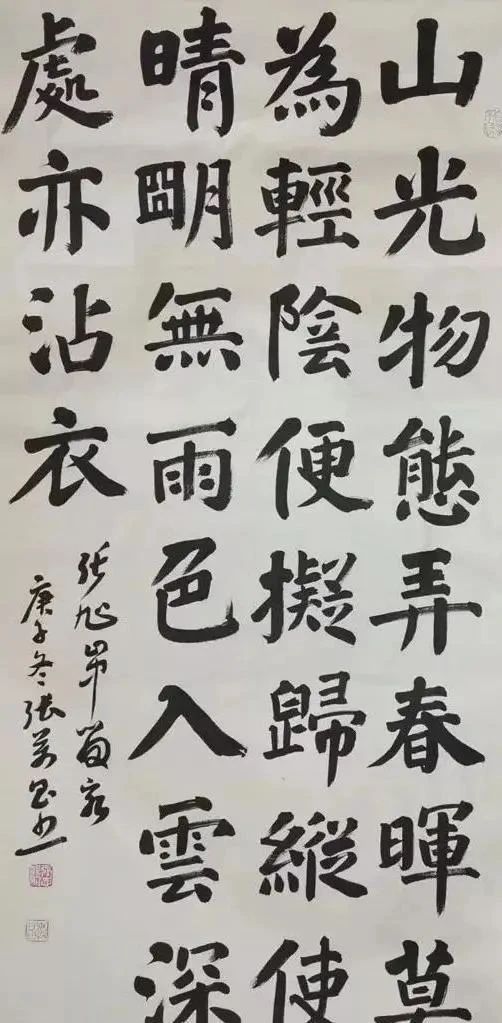 山光物態弄春暉莫
為輕陰便擬歸縱使
晴明無雨色入雲深
處亦沾衣
张旭山中留客
庚子冬張